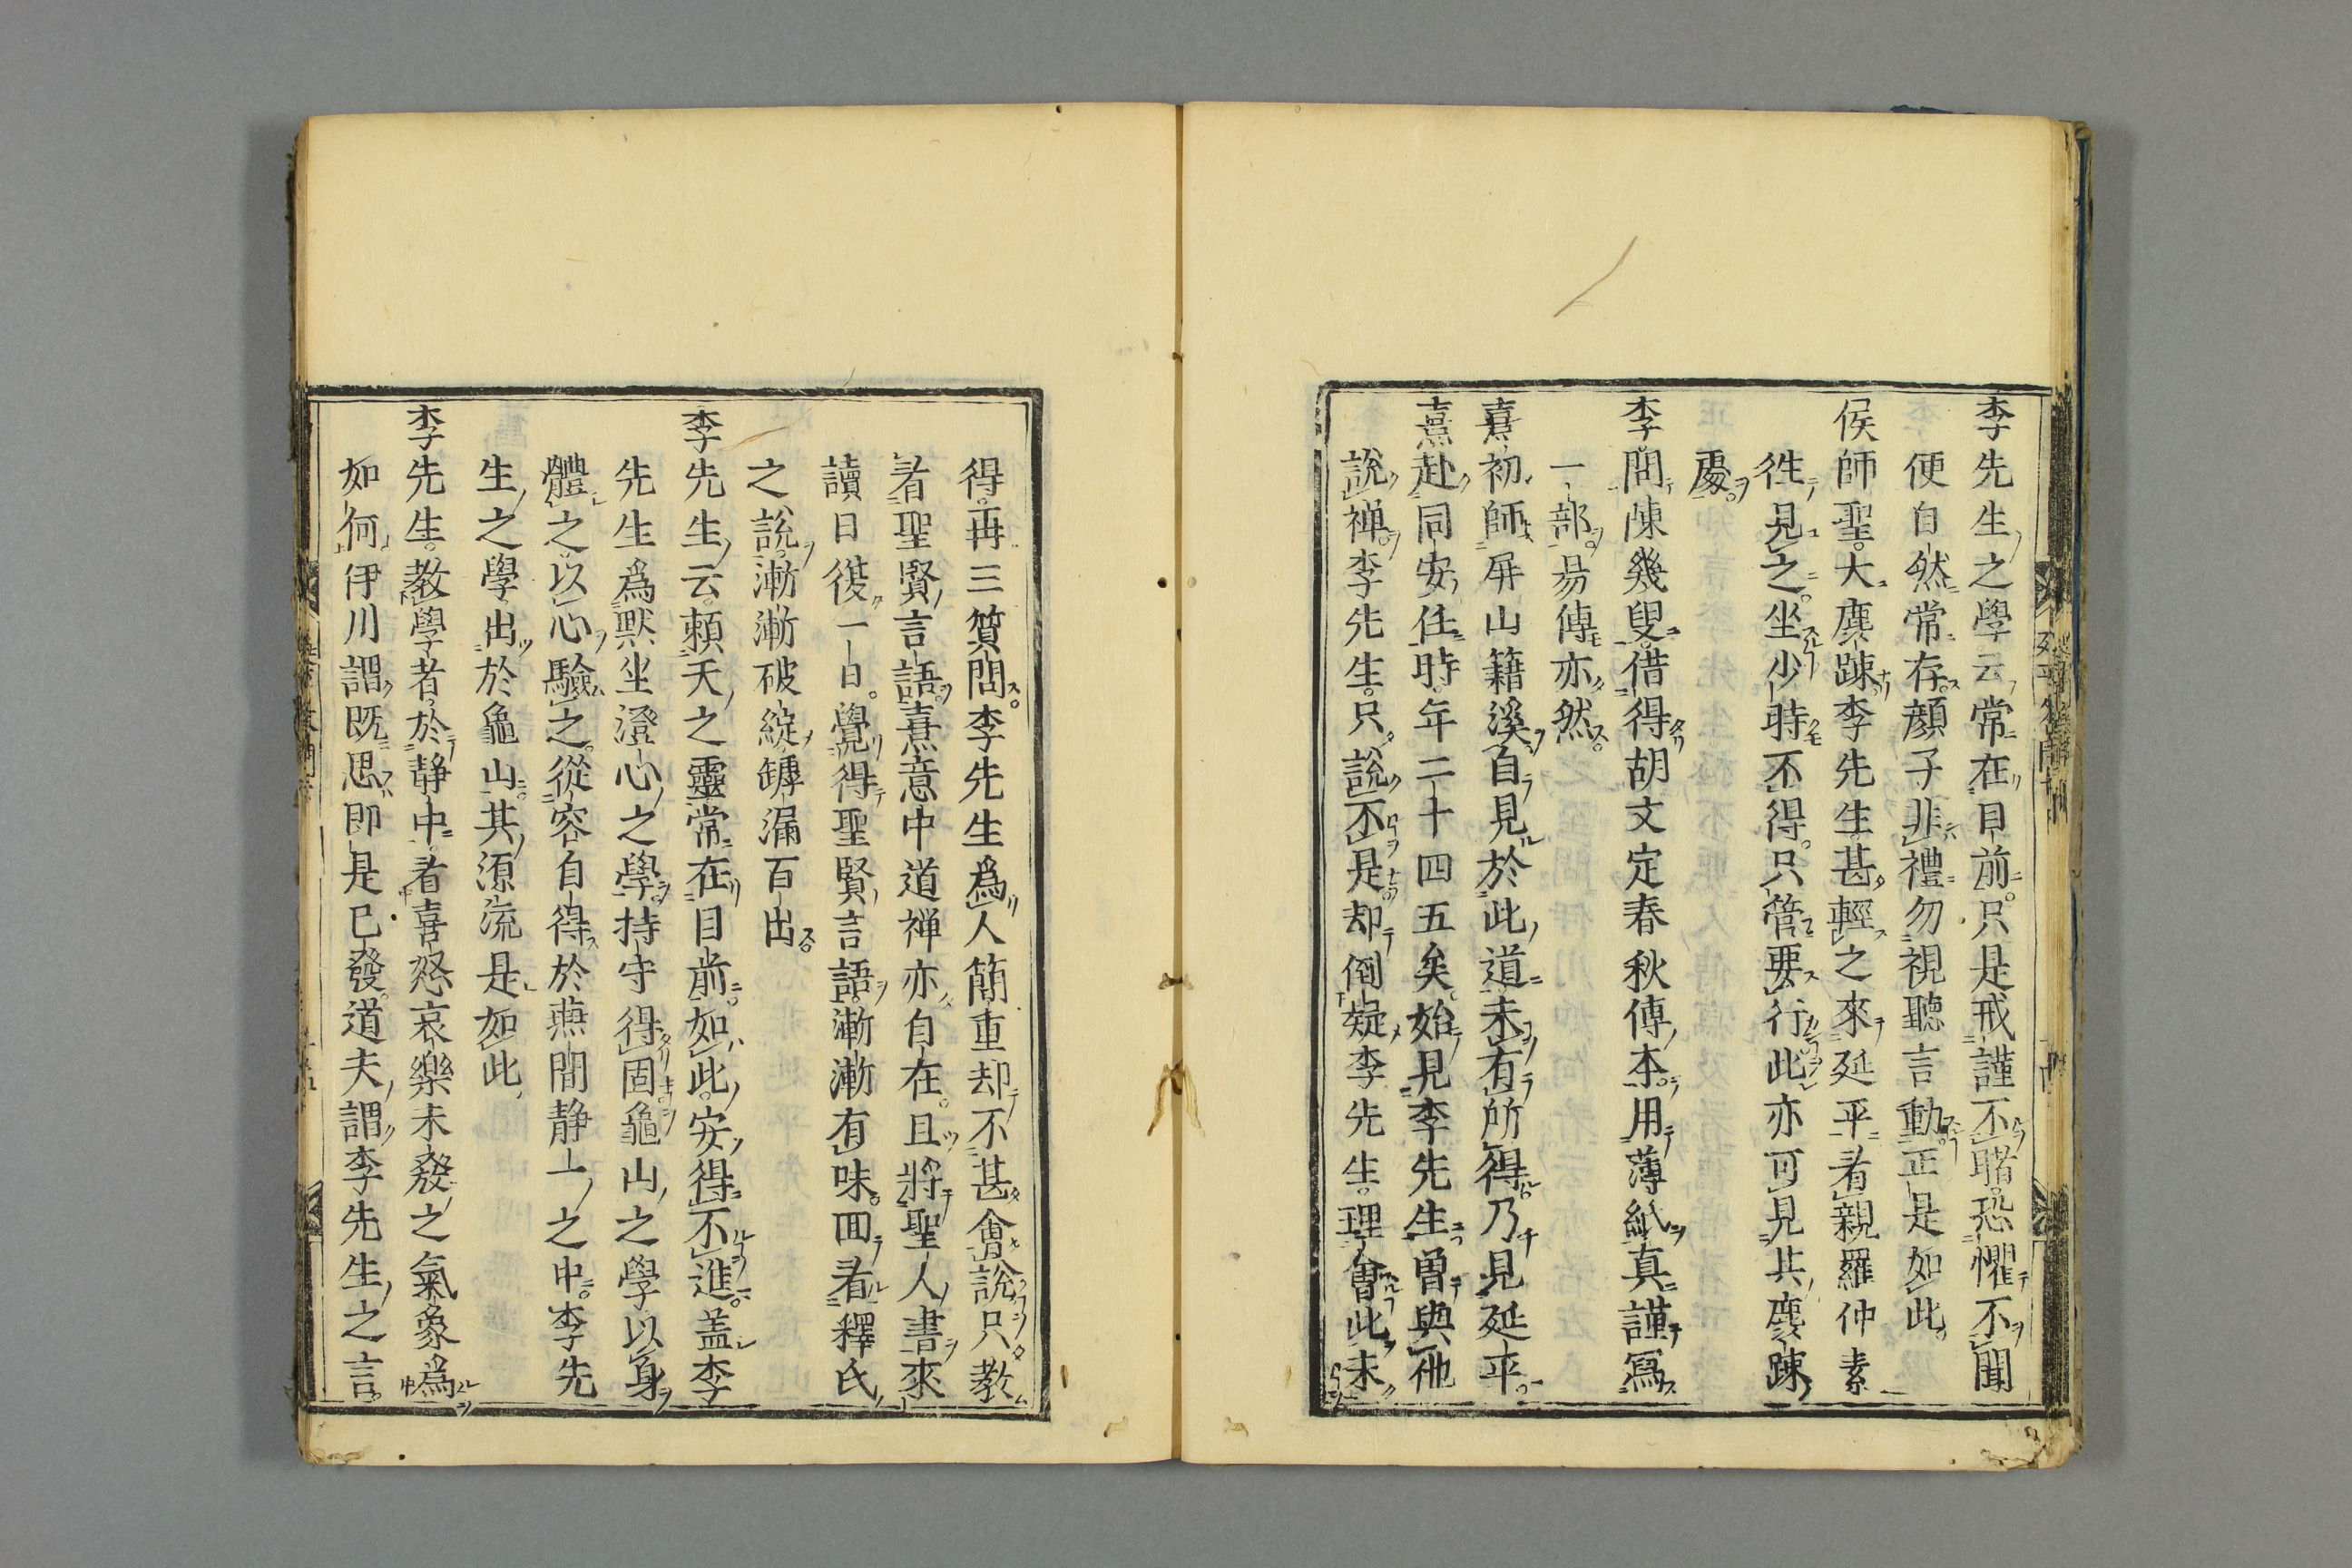 李先生之學云常在目前只是戒謹不睹恐懼不聞
便自然常存顏子非禮勿視聽言動正是如此
侯師聖大麄踈李先生甚輕之來延平看親羅仲素
徃見之坐少時不得只管要行此亦可見其麄踈
處
李問陳幾叟借得胡文定春秋傳本用薄紙真謹寫
一部易傳亦然
熹初師屏山籍溪自見於此道未有所得乃見延平
熹赴同安任時年二十四五矣始見李先生曽與他
說禅李先生只說不是却倒疑李先生理會此未
得再三質問李先生爲人簡重却不甚會說只教
看聖賢言語熹意中道禅亦自在且將聖人書來
讀日復一日覺得聖賢言語漸漸有味囬看釋氏
之說漸漸破綻罅漏百出
李先生云賴天之靈常在目前如此安得不進盖李
先生爲默坐澄心之學持守得固龜山之學以身
體之以心驗之從容自得於燕間静一之中李先
生之學出於龜山其源流是如此
李先生教學者於静中看喜怒哀樂未發之氣象爲
如何伊川謂既思即是已發道夫謂李先生之言